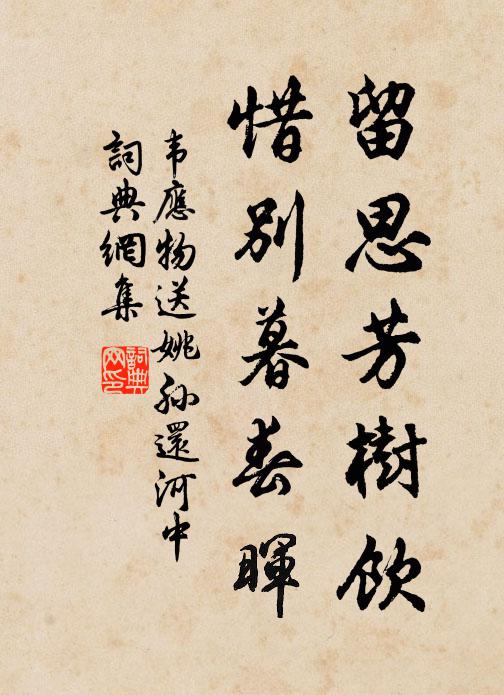 留思芳樹飲
惜別暮春暉
韦應物送姚孙還河中
詞典網集
詞典
网印